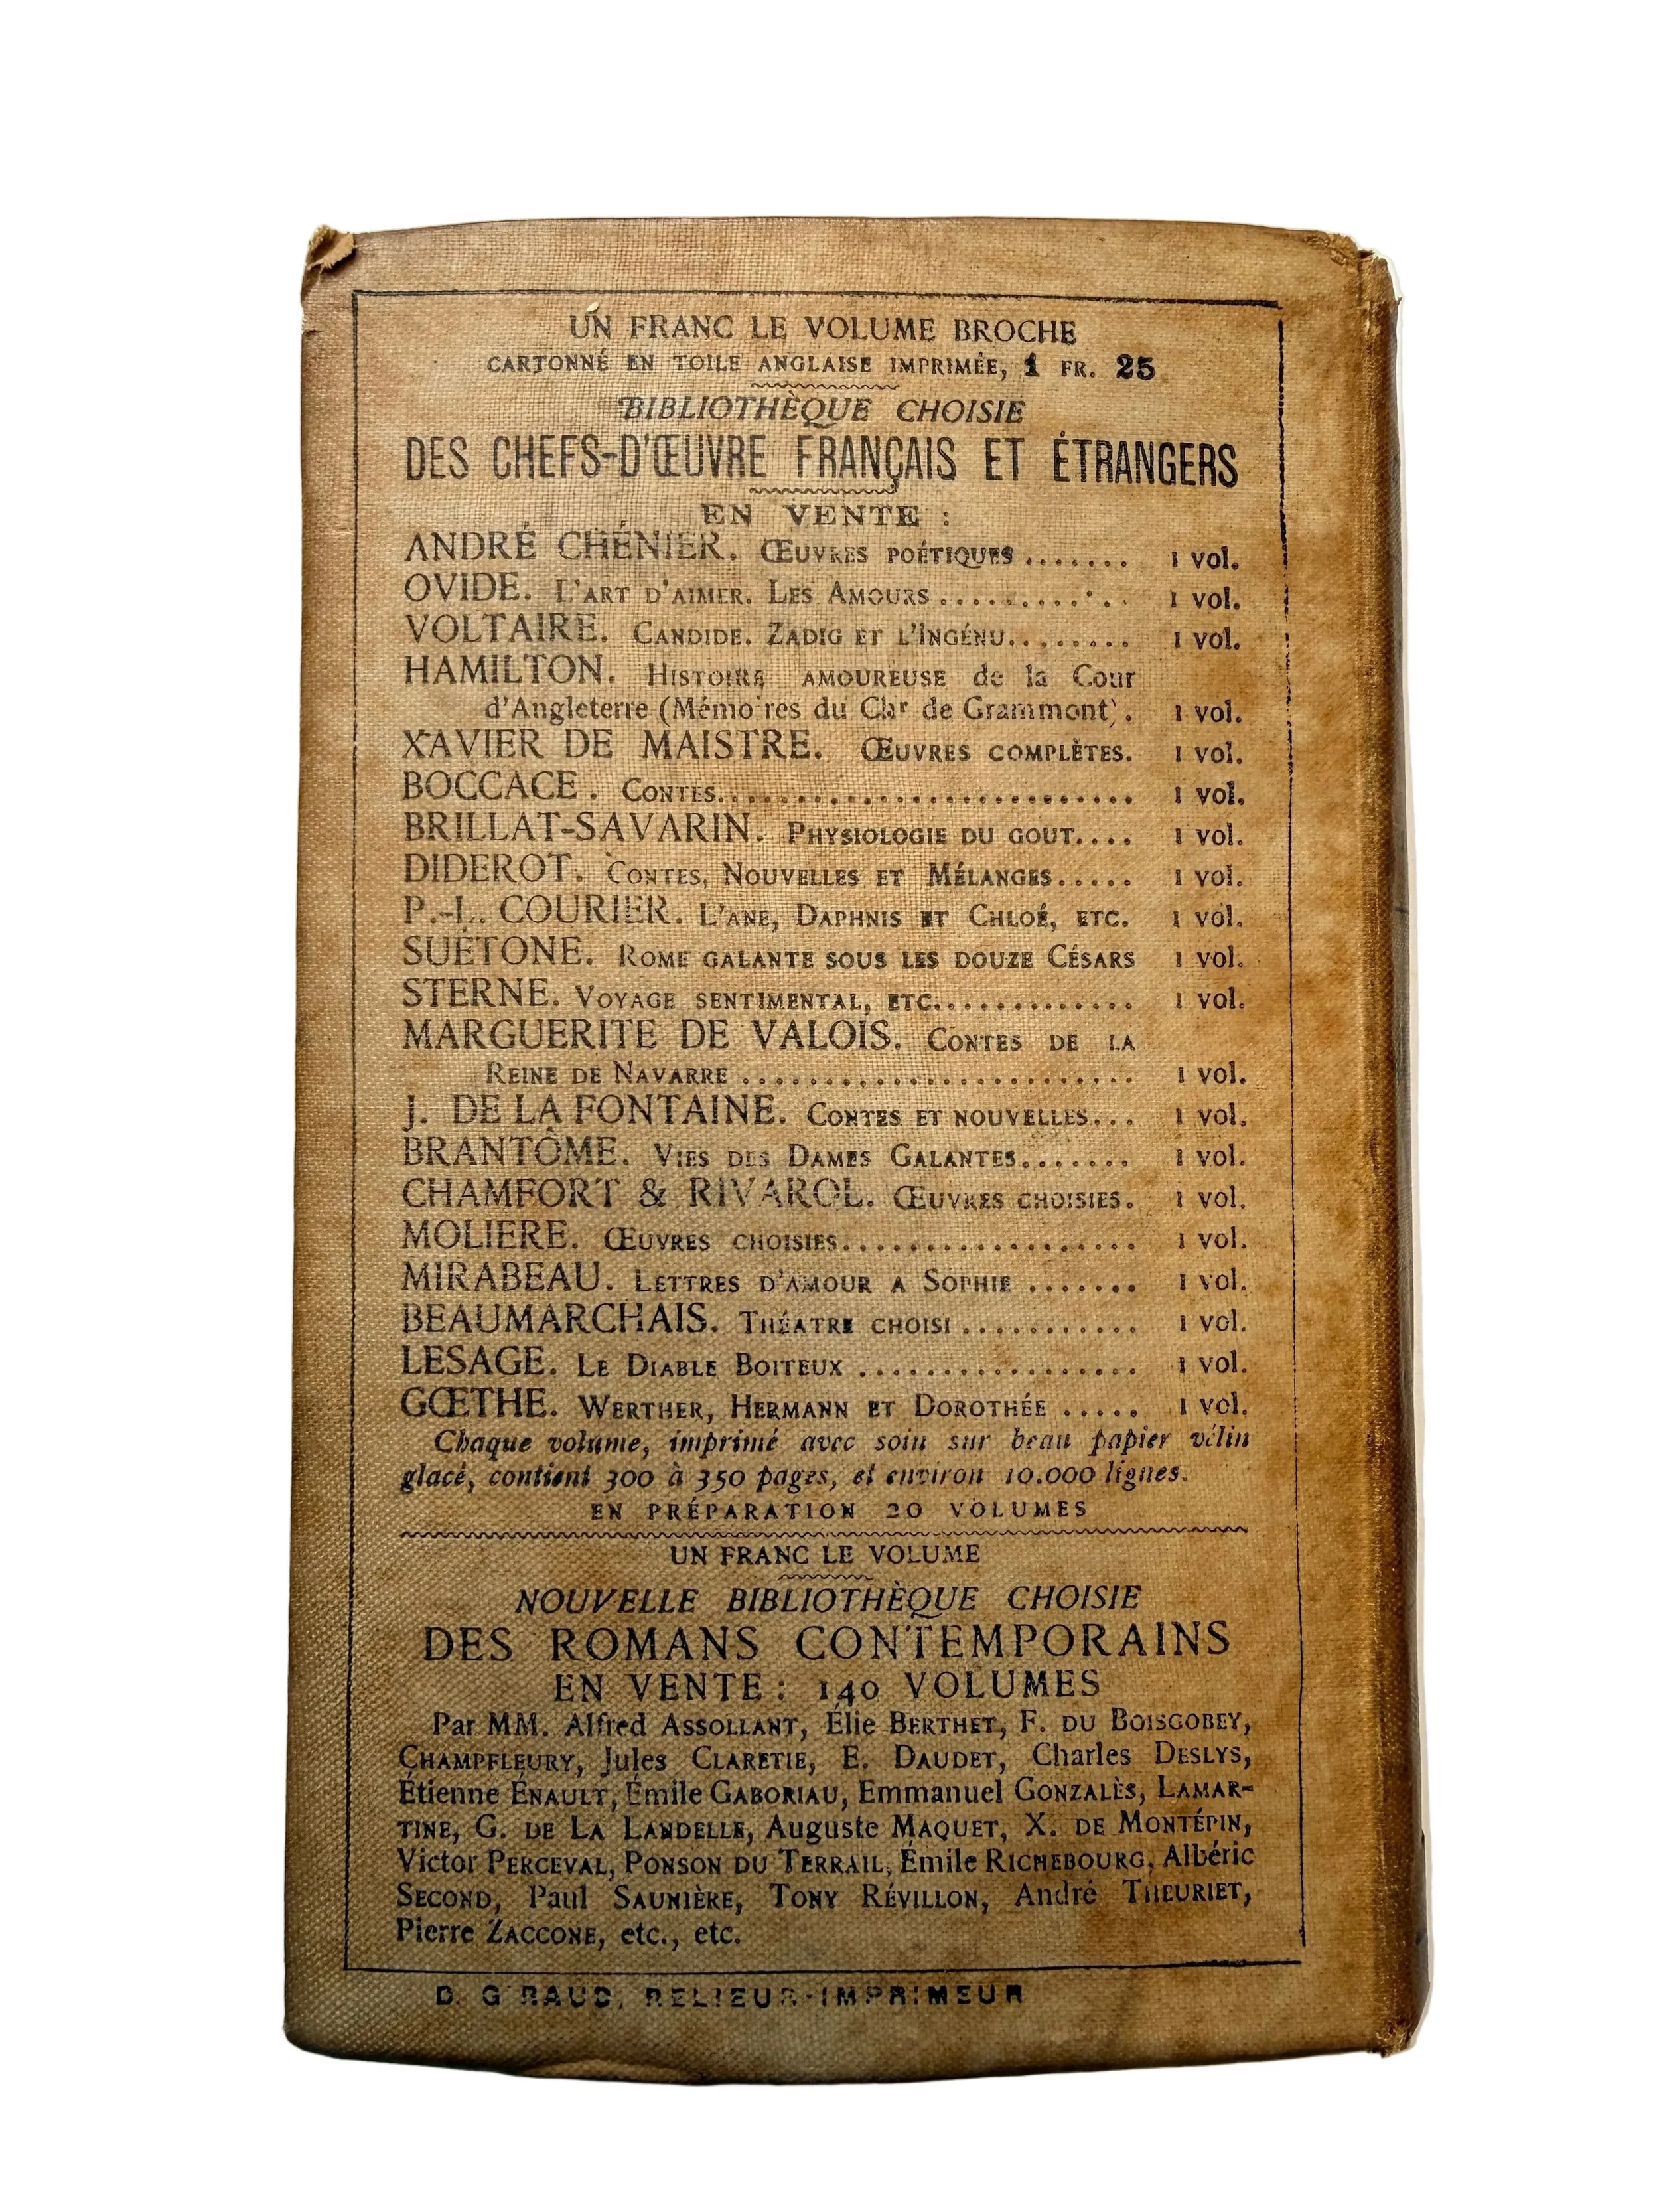 UN FRANC LE VOLUME BROCHE
CARTONNÉ EN TOILE ANGLAISE IMPRIMÉE, 1 FR. 25
BIBLIOTHÈQUE CHOISIE
DES CHEFS-D'ŒUVRE FRANÇAIS ET ÉTRANGERS
EN VENTE :
ANDRÉ CHÉNIER. ŒUVRES POÉTIQUES ....... 1 vol.
OVIDE. L'ART D'AIMER. LES AMOURS ............ 1 vol.
VOLTAIRE. CANDIDE. ZADIG ET L'INGÉNU........ 1 vol.
HAMILTON. HISTOIRE AMOUREUSE de la Cour
d'Angleterre (Mémoires du Chr de Grammont). 1 vol.
XAVIER DE MAISTRE. ŒUVRES COMPLÈTES. 1 vol.
BOCCACE. CONTES.......................... 1 vol.
BRILLAT-SAVARIN. PHYSIOLOGIE DU GOUT.... 1 vol.
DIDEROT. CONTES, NOUVELLES ET MÉLANGES..... 1 vol.
P.-L. COURIER. L'ANE, DAPHNIS ET CHLOÉ, ETC. 1 vol.
SUÉTONE. ROME GALANTE SOUS LES DOUZE CÉSARS 1 vol.
STERNE. VOYAGE SENTIMENTAL, ETC............. 1 vol.
MARGUERITE DE VALOIS. CONTES DE LA
REINE DE NAVARRE ........................ 1 vol.
J. DE LA FONTAINE. CONTES ET NOUVELLES... 1 vol.
BRANTÔME. VIES DES DAMES GALANTES....... 1 vol.
CHAMFORT & RIVAROL. ŒUVRES CHOISIES. 1 vol.
MOLIERE. ŒUVRES CHOISIES.................. 1 vol.
MIRABEAU. LETTRES D'AMOUR A SOPHIE ....... 1 vol.
BEAUMARCHAIS. THÉATRE CHOISI ........... 1 vol.
LESAGE. LE DIABLE BOITEUX ................. 1 vol.
GŒTHE. WERTHER, HERMANN ET DOROTHÉE ..... 1 vol.
Chaque volume, imprimé avec soin sur beau papier vélin
glacé, contient 300 à 350 pages, et environ 10.000 lignes.
EN PRÉPARATION 20 VOLUMES
UN FRANC LE VOLUME
NOUVELLE BIBLIOTHÈQUE CHOISIE
DES ROMANS CONTEMPORAINS
EN VENTE : 140 VOLUMES
Par MM. Alfred ASSOLLANT, Élie BERTHET, F. DU BOISGOBEY,
CHAMPFLEURY, Jules CLARETIE, E. DAUDET, Charles DESLYS,
Étienne ÉNAULT, Émile GABORIAU, Emmanuel GONZALÈS, LAMAR-
TINE, G. DE LA LANDELLE, Auguste MAQUET, X. DE MONTÉPIN,
Victor PERCEVAL, PONSON DU TERRAIL, Émile RICHEBOURG, Albéric
SECOND, Paul SAUNIÈRE, TONY RÉVILLON, André THEURIET,
Pierre ZACCONE, etc., etc.
D. GIRAUD, RELIEUR-IMPRIMEUR